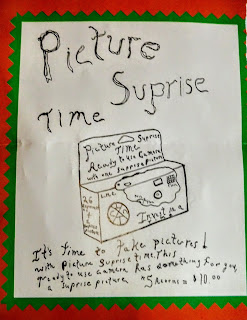 Picture
Suprise
Time
Picture Suprise
Time
Ready to use Camera
with one suprise picture
26
Invent is a
It's time to take pictures!
with Picture Suprise time. This
ready to use camera has something for you,
a suprise picture
= $10.00